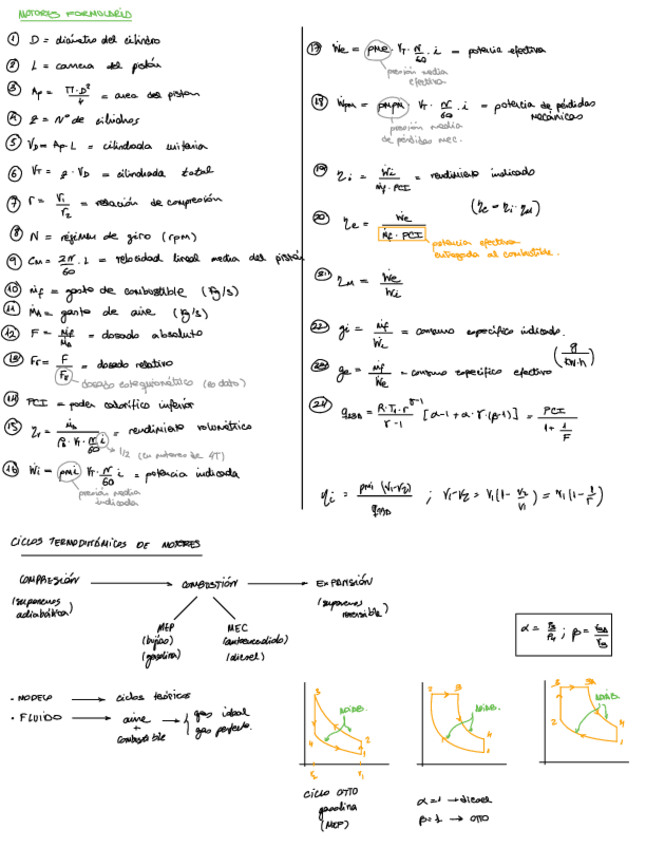 MOTORES FORMULARIO
① D = diámetro del cilindro
② L = carrera del pistón
③ Ap = π·D²/4 = area del pistón
④ z = Nº de cilindros
⑤ VD = Ap·L = cilindrada unitaria
⑥ VT = z·VD = cilindrada total
⑦ r = V1/V2 = relación de compresión
⑧ N = régimen de giro (rpm)
⑨ Cm = 2N/60 · L = velocidad lineal media del pistón
⑩ ṁf = gasto de combustible (kg/s)
⑪ ṁa = gasto de aire (kg/s)
⑫ F = ṁf/ṁa = dosado absoluto
⑬ Fr = F/Fe = dosado relativo
dosado estequiométrico (es dato)
⑭ PCI = poder calorífico inferior
⑮ = rendimiento volumétrico
1/2 (en motores de 4T)
⑯ Ẇi = pmi · VT · N/60 · i = potencia indicada
presión media
indicada
⑰ Ẇe = pme · VT · N/60 · i = potencia efectiva
presión media
efectiva
⑱ Ẇpm = pmpm · VT · N/60 · i = potencia de pérdidas
mecánicas
presión media
de pérdidas mec.
⑲ ηi = Ẇi/(ṁf · PCI) = rendimiento indicado
⑳ ηe = Ẇe/(ṁf · PCI) (ηe = ηi · ηm)
potencia efectiva
entregada al combustible.
㉑ ηm = Ẇe/Ẇi
㉒ gi = ṁf/Ẇi = consumo específico indicado.
㉓ ge = ṁf/Ẇe = consumo específico efectivo (g/kW·h)
㉔ [α-1+α·γ·(β-1)] = PCI/(1+1/F)
; V1-V2 = V1(1-V2/V1) = V1(1-1/r)
CICLOS TERMODINÁMICOS DE MOTORES
COMPRESIÓN → COMBUSTIÓN → EXPANSIÓN
(suponemos
adiabática)
(suponemos
reversible)
MEP
(bujías)
(gasolina)
MEC
(autoencendido)
(diesel)
· MODELO → ciclos teóricos
· FLUIDO → aire + combustible → gas ideal
gas perfecto.
ADIAB.
ADIAB.
ADIAB.
CICLO OTTO
gasolina
(MEP)
α=1 → diesel
β=1 → OTTO